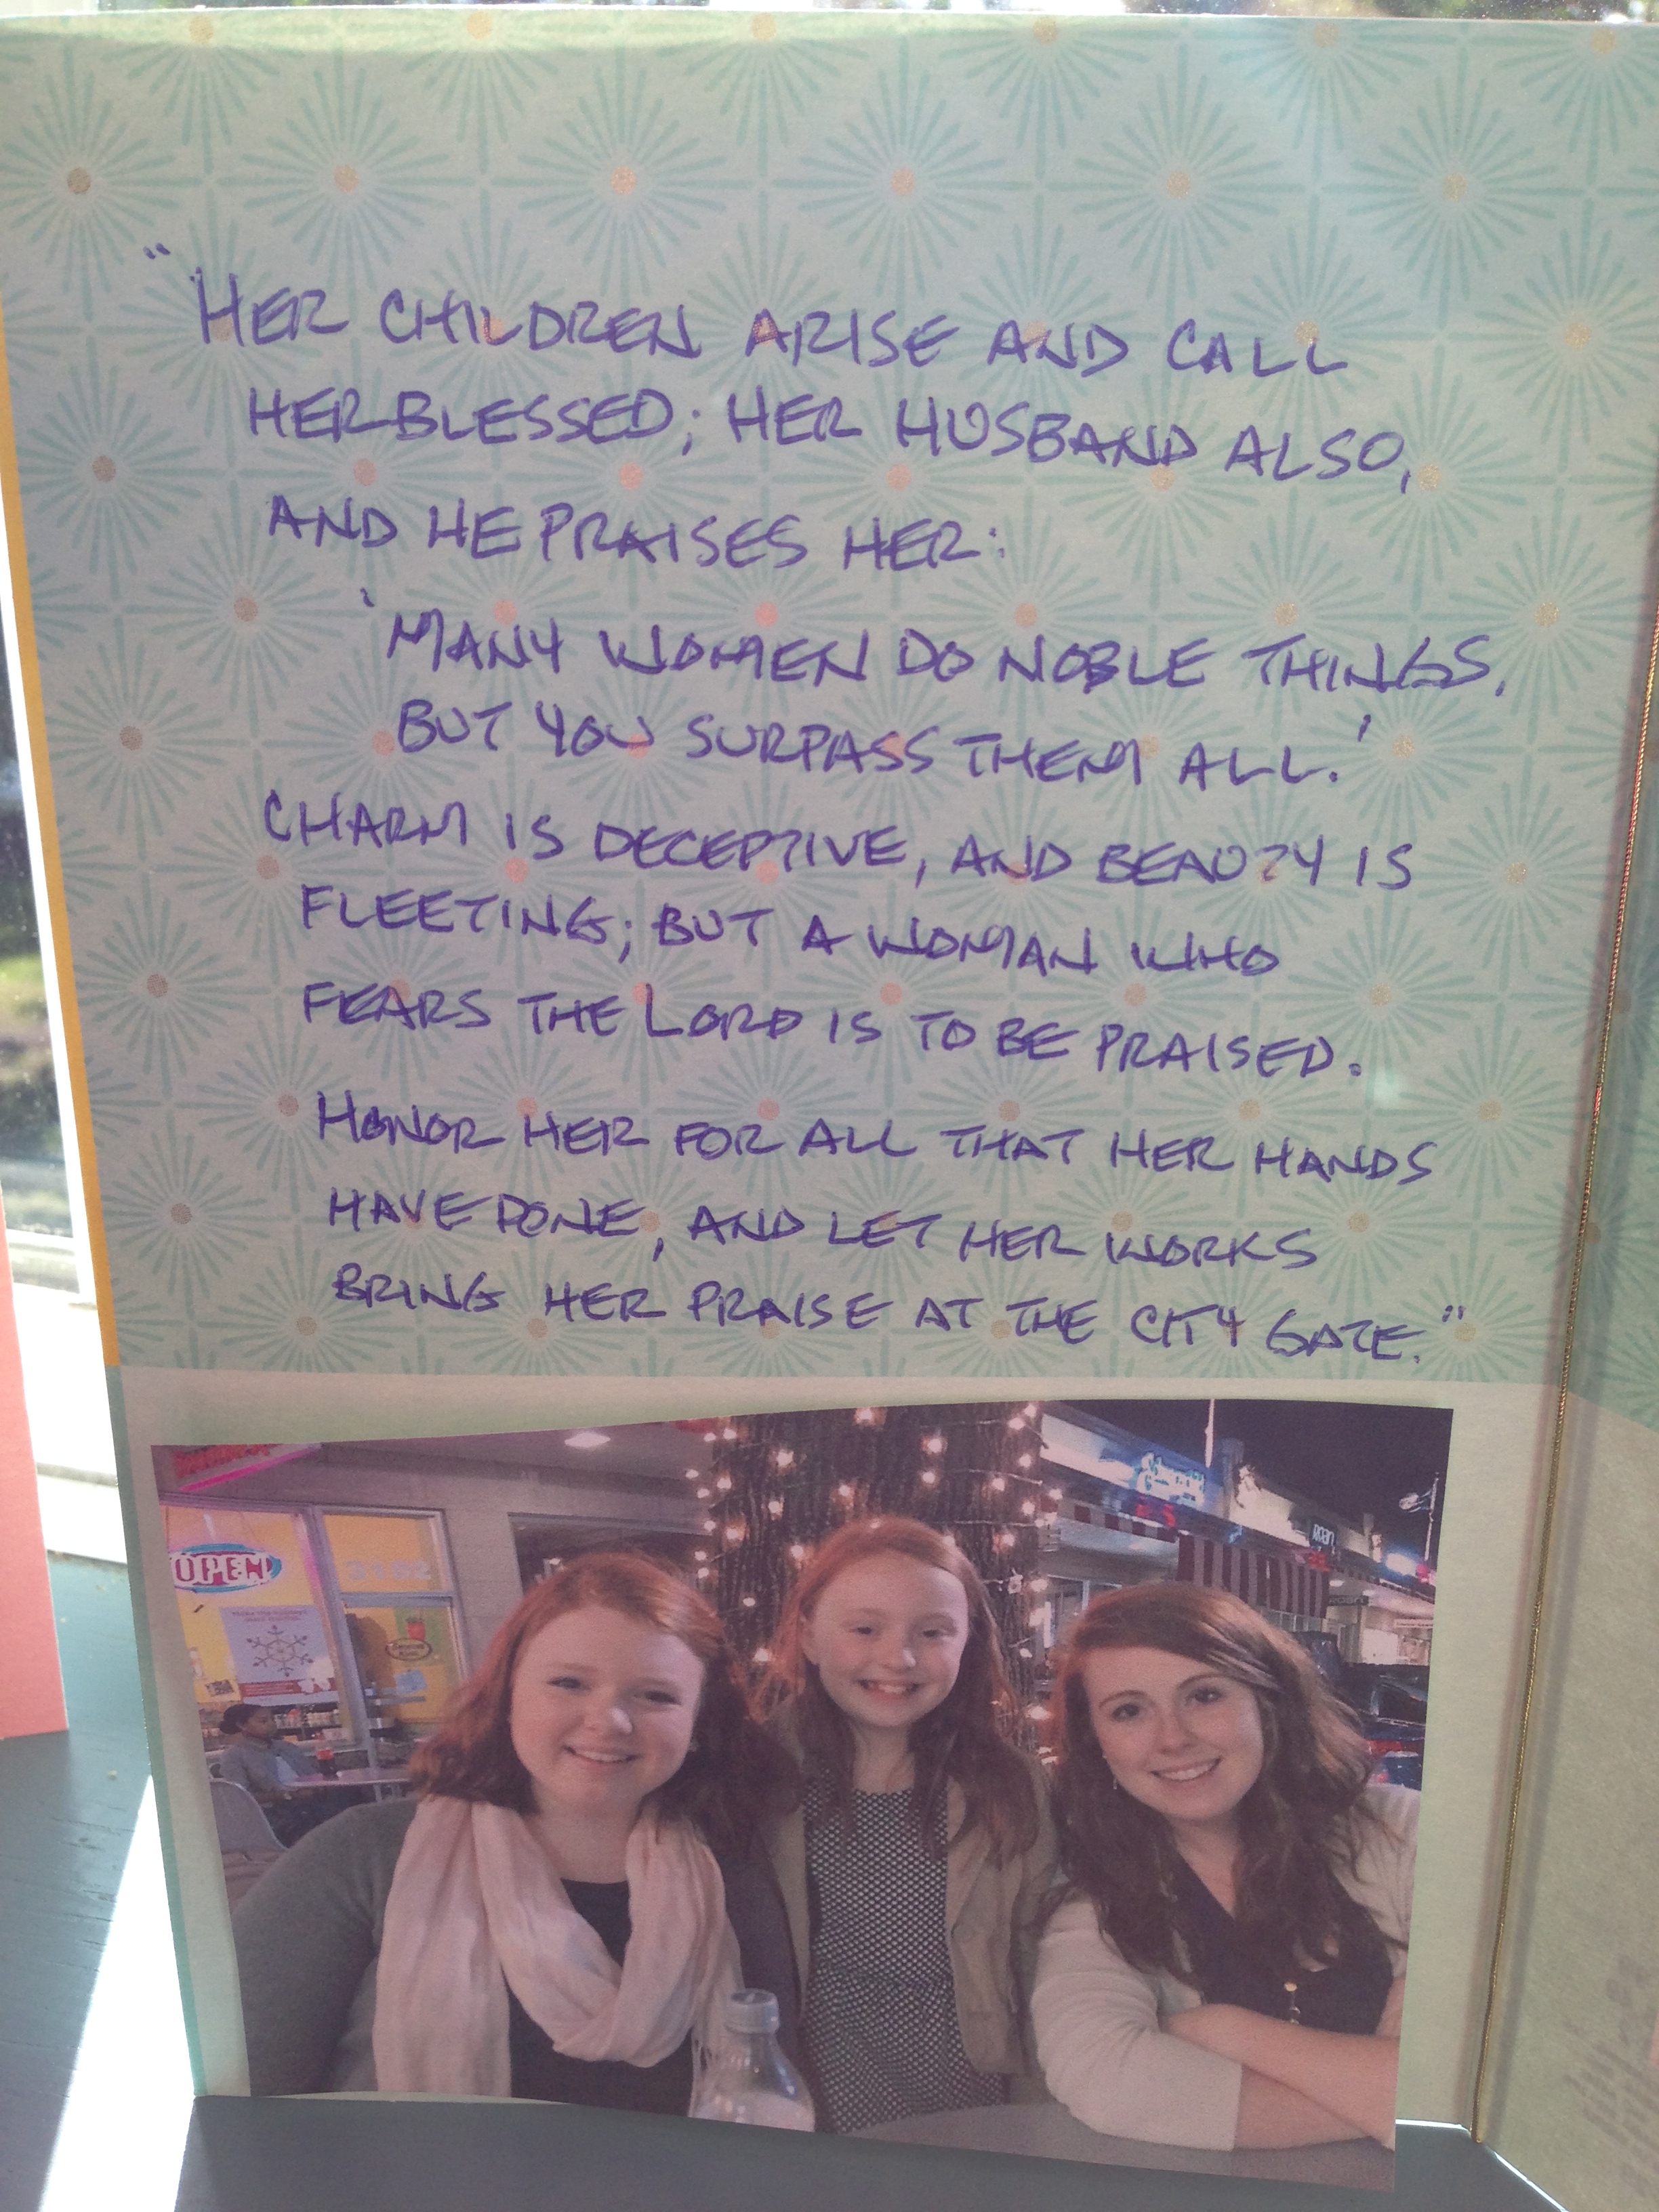 "HER CHILDREN ARISE AND CALL
HER BLESSED; HER HUSBAND ALSO,
AND HE PRAISES HER:
'MANY WOMEN DO NOBLE THINGS,
BUT YOU SURPASS THEM ALL.'
CHARM IS DECEPTIVE, AND BEAUTY IS
FLEETING; BUT A WOMAN WHO
FEARS THE LORD IS TO BE PRAISED.
HONOR HER FOR ALL THAT HER HANDS
HAVE DONE, AND LET HER WORKS
BRING HER PRAISE AT THE CITY GATE."
OPEN
3102